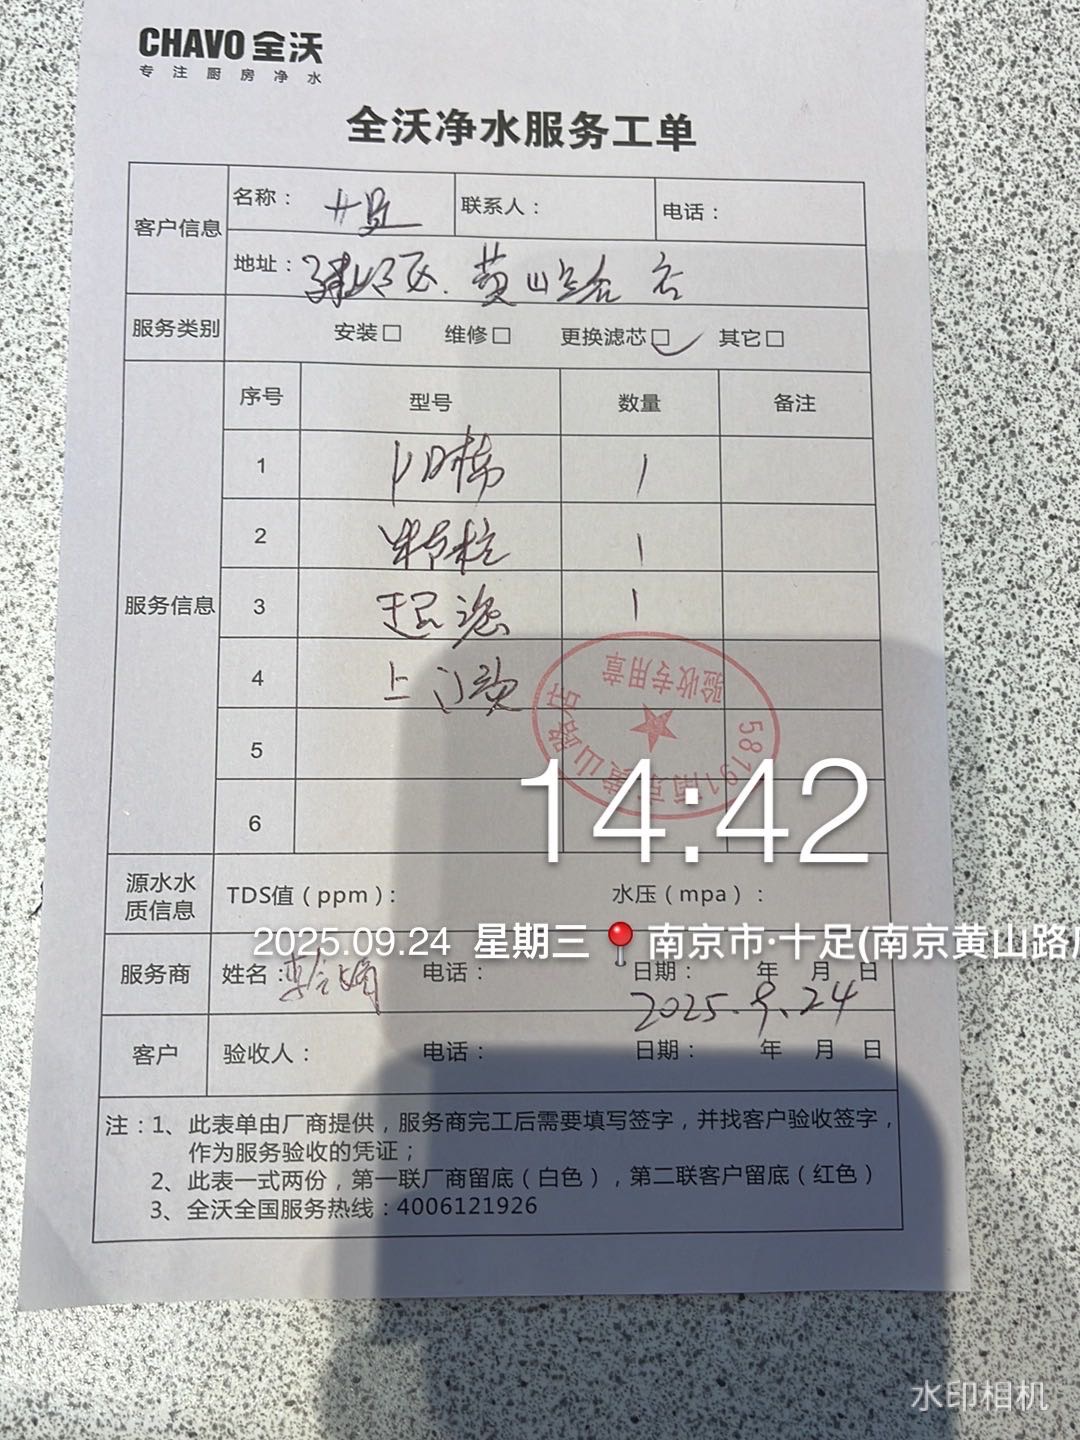 CHAVO 全沃
专注厨房净水
全沃净水服务工单
客户信息 名称： 十足 联系人： 电话：
地址： 建邺区.黄山路店
服务类别 安装□ 维修□ 更换滤芯□✓ 其它□
服务信息 序号 型号 数量 备注
1 PP棉 1
2 1
3 超滤 1
4 上门费
5
6
58191南京黄山路店
验收专用章
14:42
源水水质信息 TDS值（ppm）： 水压（mpa）：
2025.09.24 星期三 📍南京市·十足(南京黄山路店
服务商 姓名： 电话： 日期： 年 月 日
2025.9.24
客户 验收人： 电话： 日期： 年 月 日
注：1、此表单由厂商提供，服务商完工后需要填写签字，并找客户验收签字，
作为服务验收的凭证；
2、此表一式两份，第一联厂商留底（白色），第二联客户留底（红色）
3、全沃全国服务热线：4006121926
水印相机